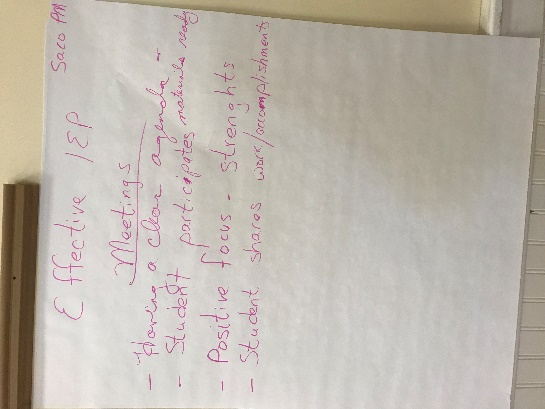 Effective IEP Saco AM
Meetings
- "Having a clear agenda -
materials ready
- Student participates
- Positive focus - strenghts
- Student shares work/accomplishments